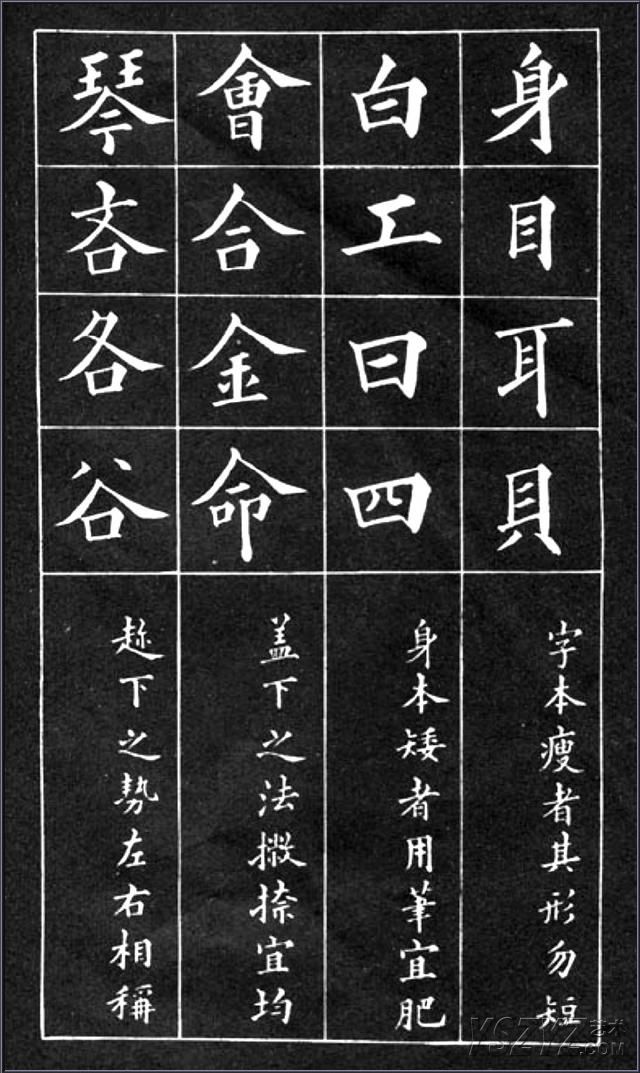 身目耳貝
字本瘦者其形勿短
白工曰四
身本矮者用筆宜肥
會合金命
盖下之法撇捺宜均
琴吝各谷
趂下之勢左右相稱
YSZYZ艺术.COM